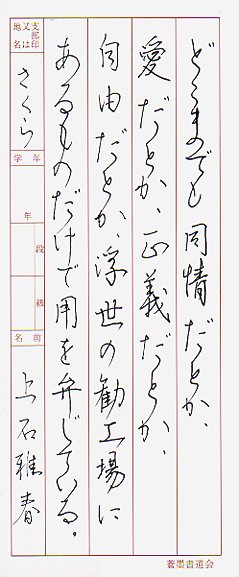 どこまでも同情だとか、
愛だとか、正義だとか、
自由だとか、浮世の勧工場に
あるものだけで用を弁じている。
支部印
又は
地名
さくら
学年
年
段
級
名前
上石雅春
蒼墨書道会